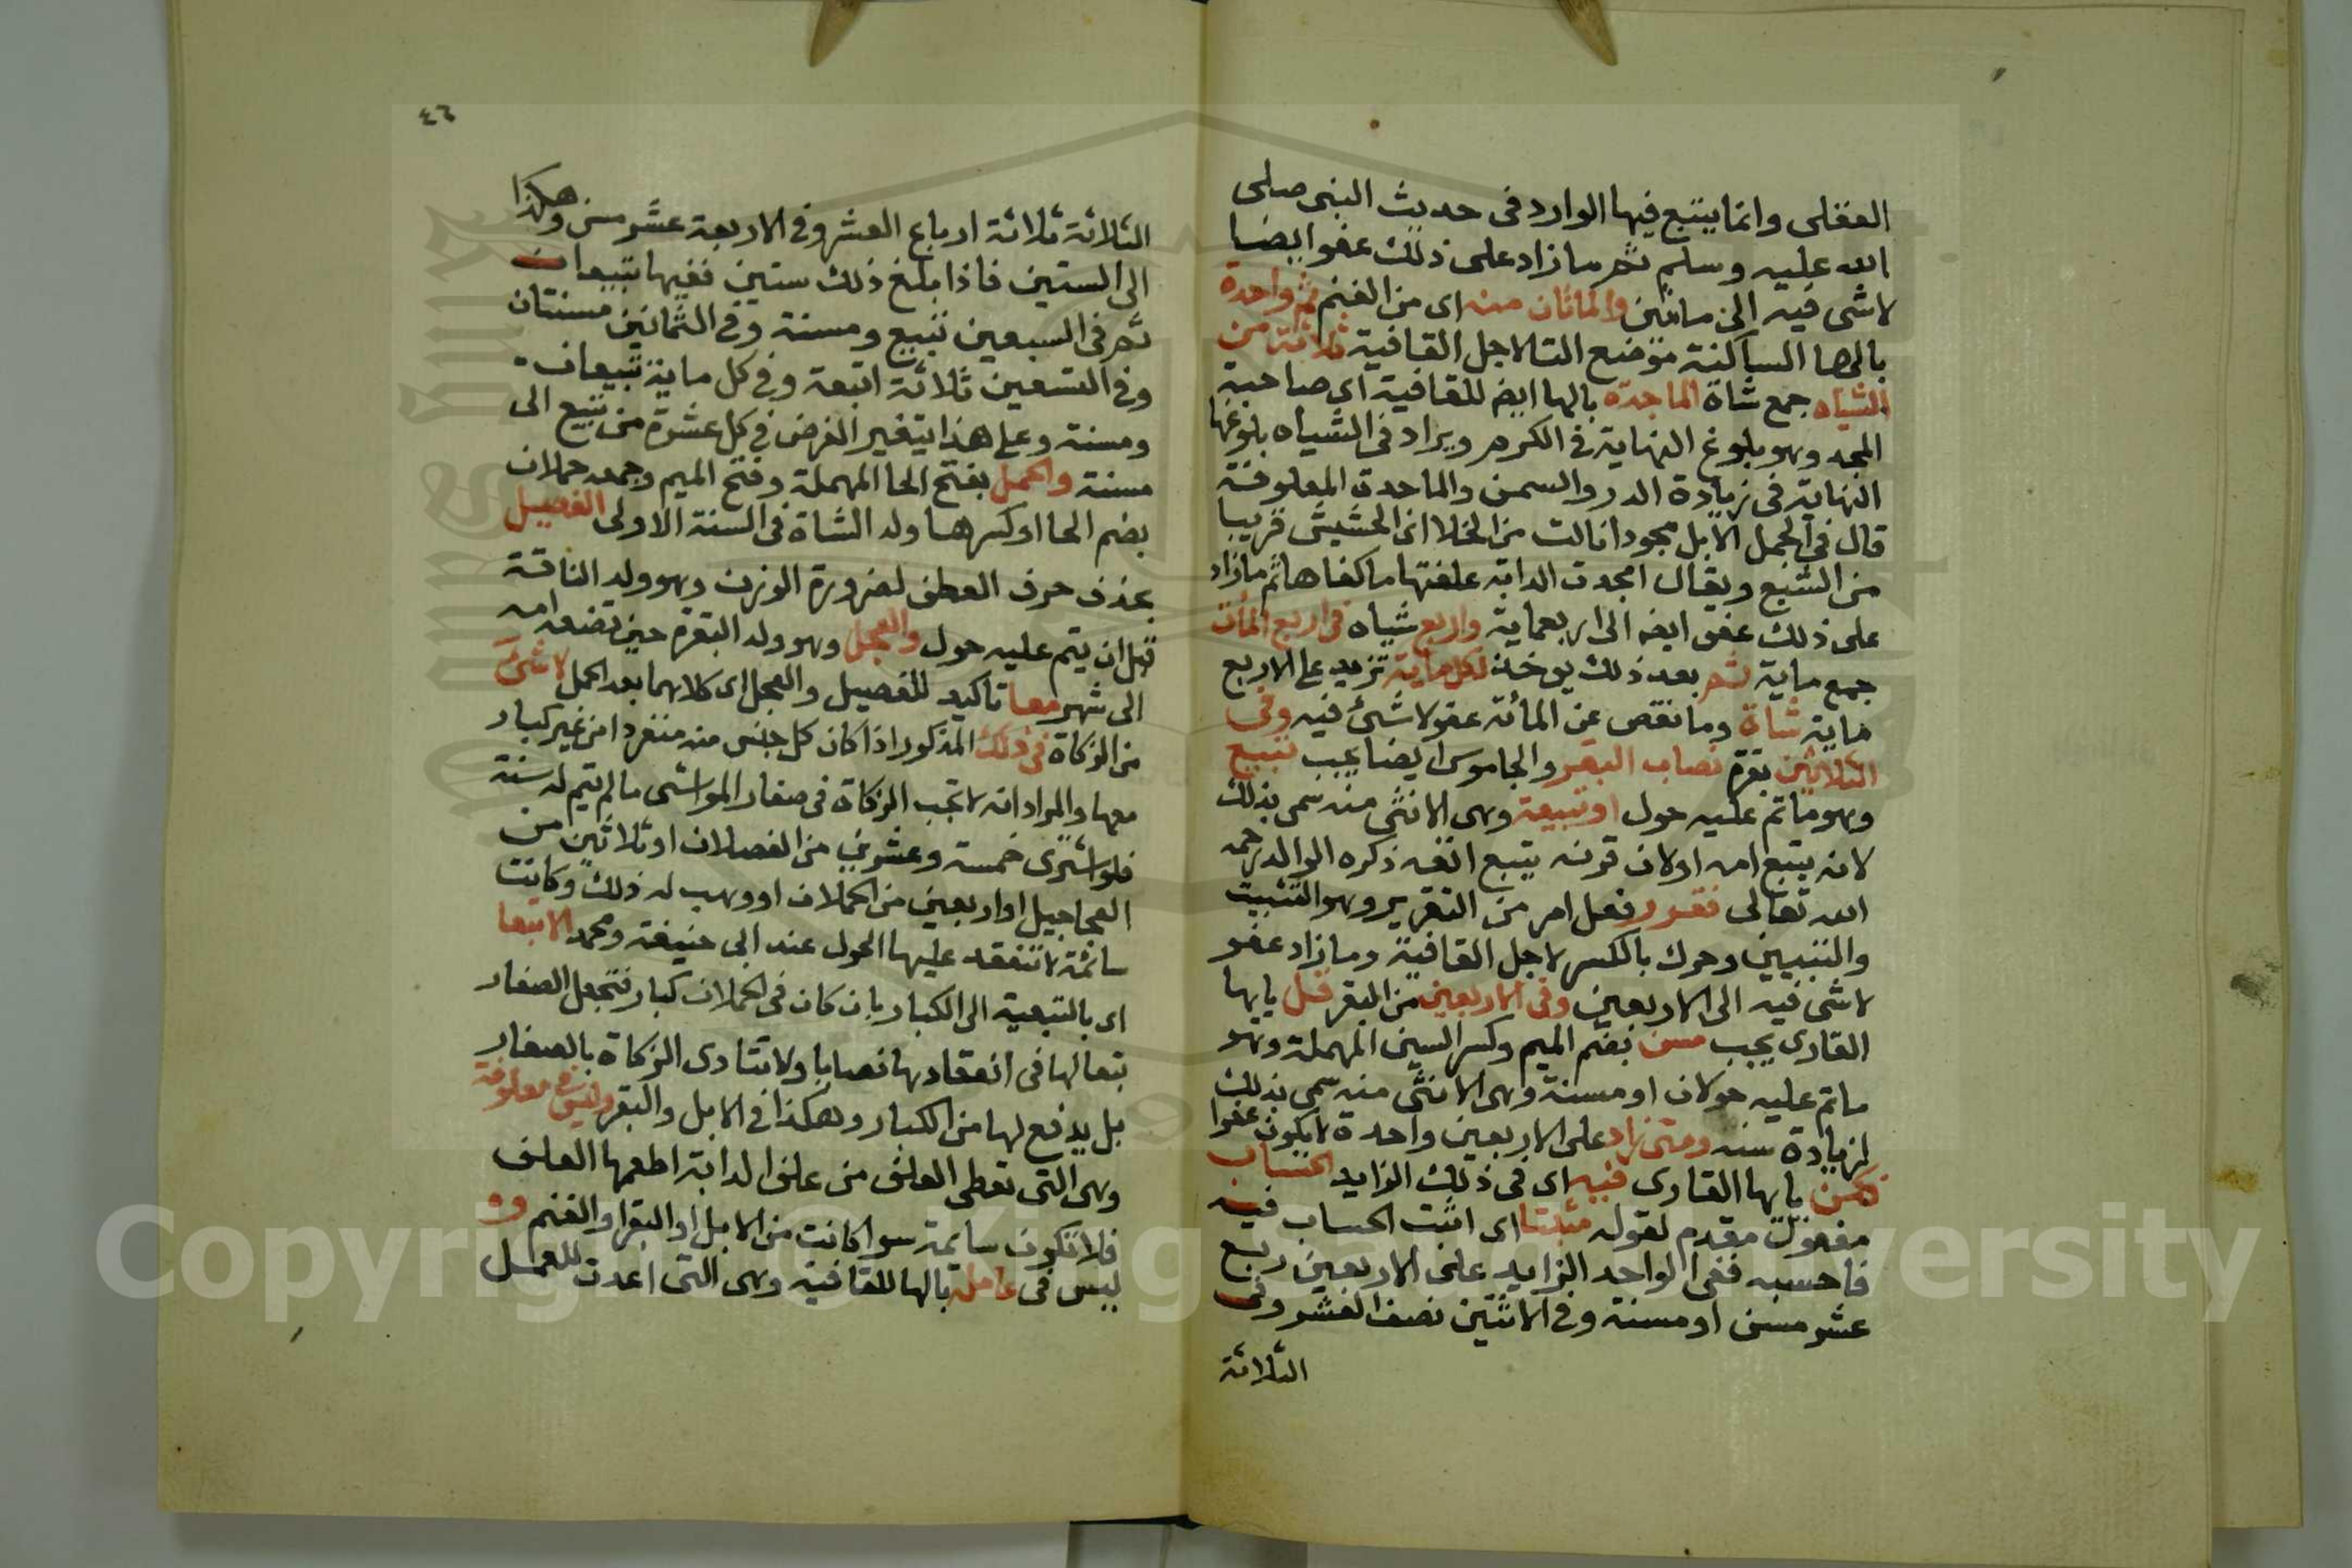 العقلى وانما يتبع فيها الوارد فى حديث النبى صلى
الله عليه وسلم ثم ما زاد على ذلك عفوا يضا
لا شى فيه الى مائتين والمائتان منه اى من الغنم ثم واحدة
بالها الساكنة موضع التا لاجل القافية ثلاثة من
الشياه جمع شاة الماجدة بالها ايضا للقافية اى صاحبة
المجد وهو بلوغ النهاية فى الكرم ويراد فى الشياه بلوغها
النهاية فى زيادة الدر والسمن والماجدة المعلوفة
قال فى المجمل الابل مجودا نالت من الخلا اى الحشيش قريبا
من الشبع ويقال امجدت الدابة علفتها ما كفاها ثم مازاد
على ذلك عفو ايضا الى اربعماية واربع شياه فى اربع المأت
جمع ماية ثم بعد ذلك يوخذ لكل ماية تزيد على الاربع
ماية شاة وما نقص عن المأئة عفو لا شئ فيه وفى
الثلاثين بقرة نصاب البقر والجاموس ايضا يجب تبيع
وهو ما تم عليه حول او تبيعة وهى الانثى منه سمى بذلك
لانه يتبع امه او لان قرنه يتبع اذنه ذكره الوالد رحمه
الله تعالى فقرر فعل امر من التقرير وهو التثبيت
والتبيين وحرك بالكسر لاجل القافية وما زاد عفو
لا شى فيه الى الاربعين وفى الاربعين من البقر قل يا ايها
القارى يجب مسن بضم الميم وكسر السين المهملة وهو
ما تم عليه حولان او مسنة وهى الانثى منه سمى بذلك
لزيادة سنه ومتى زاد على الاربعين واحدة لا يكون عفوا
كمن يا ايها القارى فيه اى فى ذلك الزايد الحساب
مفعول مقدم لقوله مثبتا اى اثبت الحساب فيه
فاحسبه ففى الواحد الزايد على الاربعين ربع
عشر مسن او مسنة وفى الاثنين نصف العشر وفى
الثلاثة
٤٦
الثلاثة ثلاثة ارباع العشر وفى الاربعة عشر مسن وهكذا
الى الستين فاذا بلغ ذلك ستين ففيها تبيعان
ثم فى السبعين تبيع ومسنة وفى الثمانين مسنتان
وفى التسعين ثلاثة اتبعة وفى كل ماية تبيعان
ومسنة وعلى هذا يتغير الفرض فى كل عشرة من تبيع الى
مسنة والحمل بفتح الحا المهملة وفتح الميم وجمعه حملان
بضم الحا او كسرها ولد الشاة فى السنة الاولى الفصيل
بحذف حرف العطف لضرورة الوزن وهو ولد الناقة
قبل ان يتم عليه حول والعجل وهو ولد البقرة حين تضعه امه
الى شهر معا تاكيد للفصيل والعجل اى كلاهما بعد الحمل لا شئ
من الزكاة فى ذلك المذكور اذا كان كل جنس منه منفردا من غير كبار
معها والمراد انه لا تجب الزكاة فى صغار المواشى ما لم تيم له سنة
فلو اشترى خمسة وعشرين من الفصلان او ثلاثين من
العجاجيل او اربعين من الحملان او وهب له ذلك وكانت
سائمة لا تنعقد عليها الحول عند ابى حنيفة ومحمد الا تبعا
اى بالتبعية الى الكبار بان كان فى الحملان كبار فتجعل الصغار
تبعا لها فى انعقادها نصابا ولا تتادى الزكاة بالصغار
بل يدفع لها من الكبار وهكذا فى الابل والبقر وليس فى معلوفة
وهى التى تعطى العلف من علف الدابة اطعمها العلف
فلا تكون سايمة سوا كانت من الابل او البقر او الغنم وو
ليس فى عامله بالها للقافية وهى التى اعدت للعمل
Copyright © King Saud University